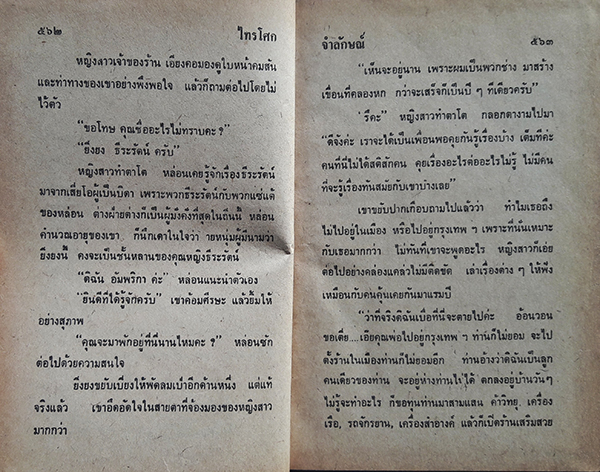 ๕๖๒ ไทรโศก
หญิงสาวเจ้าของร้าน เอียงคอมองดูใบหน้าคมสัน
และท่าทางของเขาอย่างพึงพอใจ แล้วก็ถามต่อไปโดยไม่
ไว้ตัว
“ขอโทษ คุณชื่ออะไรไม่ทราบคะ ?”
“ยิ่งยง ธีระรัตน์ ครับ”
หญิงสาวทำตาโต หล่อนเคยรู้จักเรื่องธีระรัตน์
มาจากเสี่ยโอผู้เป็นบิดา เพราะพวกธีระรัตน์กับพวกแซ่แต้
ของหล่อน ต่างฝ่ายต่างก็เป็นผู้มั่งคั่งที่สุดในถิ่นนี้ หล่อน
คำนวณอายุของเขา ก็นึกเดาในใจว่า ชายหนุ่มผู้มีนามว่า
ยิ่งยงนี้ คงจะเป็นชั้นหลานของคุณหญิงธีระรัตน์
“ดิฉัน อัมพริกา ค่ะ” หล่อนแนะนำตัวเอง
“ยินดีที่ได้รู้จักครับ” เขาค้อมศีรษะ แล้วยิ้มให้
อย่างสุภาพ
“คุณจะมาพักอยู่ที่นี่นานไหมคะ ?” หล่อนซัก
ต่อไปด้วยความสนใจ
ยิ่งยงขยับเบี่ยงให้พัดลมเป่าอีกด้านหนึ่ง แต่แท้
จริงแล้ว เขาอึดอัดใจในสายตาที่จ้องมองของหญิงสาว
มากกว่า
จำลักษณ์ ๕๖๓
“เห็นจะอยู่นาน เพราะผมเป็นพวกช่าง มาสร้าง
เขื่อนที่คลองหก กว่าจะเสร็จก็เป็นปี ๆ ทีเดียวครับ”
“รึคะ” หญิงสาวทำตาโต กลอกตางามไปมา
“ดีจังค่ะ เราจะได้เป็นเพื่อนพอคุยกันรู้เรื่องบ้าง เต็มทีค่ะ
คนที่นี่ไม่ได้สติสักคน คุยเรื่องอะไรต่ออะไรไม่รู้ ไม่มีคน
ที่จะรู้เรื่องทันสมัยกับเขาบ้างเลย”
เขาขยับปากเกือบถามไปแล้วว่า ทำไมเธอถึง
ไม่ไปอยู่ในเมือง หรือไปอยู่กรุงเทพ ๆ เพราะที่นั่นเหมาะ
กับเธอมากกว่า ไม่ทันที่เขาจะพูดอะไร หญิงสาวก็เอ่ย
ต่อไปอย่างคล่องแคล่วไม่มีติดขัด เล่าเรื่องต่าง ๆ ให้ฟัง
เหมือนกับคนคุ้นเคยกันมาแรมปี
“ว่าที่จริงดิฉันเบื่อที่นี่จะตายไปค่ะ อ้อนวอน
ขอเตี่ย....เอ๊ยคุณพ่อไปอยู่กรุงเทพ ๆ ท่านก็ไม่ยอม จะไป
ตั้งร้านในเมืองท่านก็ไม่ยอมอีก ท่านอ้างว่าดิฉันเป็นลูก
คนเดียวของท่าน จะอยู่ห่างท่านไม่ได้ ตกลงอยู่บ้านวันๆ
ไม่รู้จะทำอะไร ก็ขอทุนท่านมาสามแสน ค้าวิทยุ, เครื่อง
เรือ, รถจักรยาน, เครื่องสำอางค์ แล้วก็เปิดร้านเสริมสวย